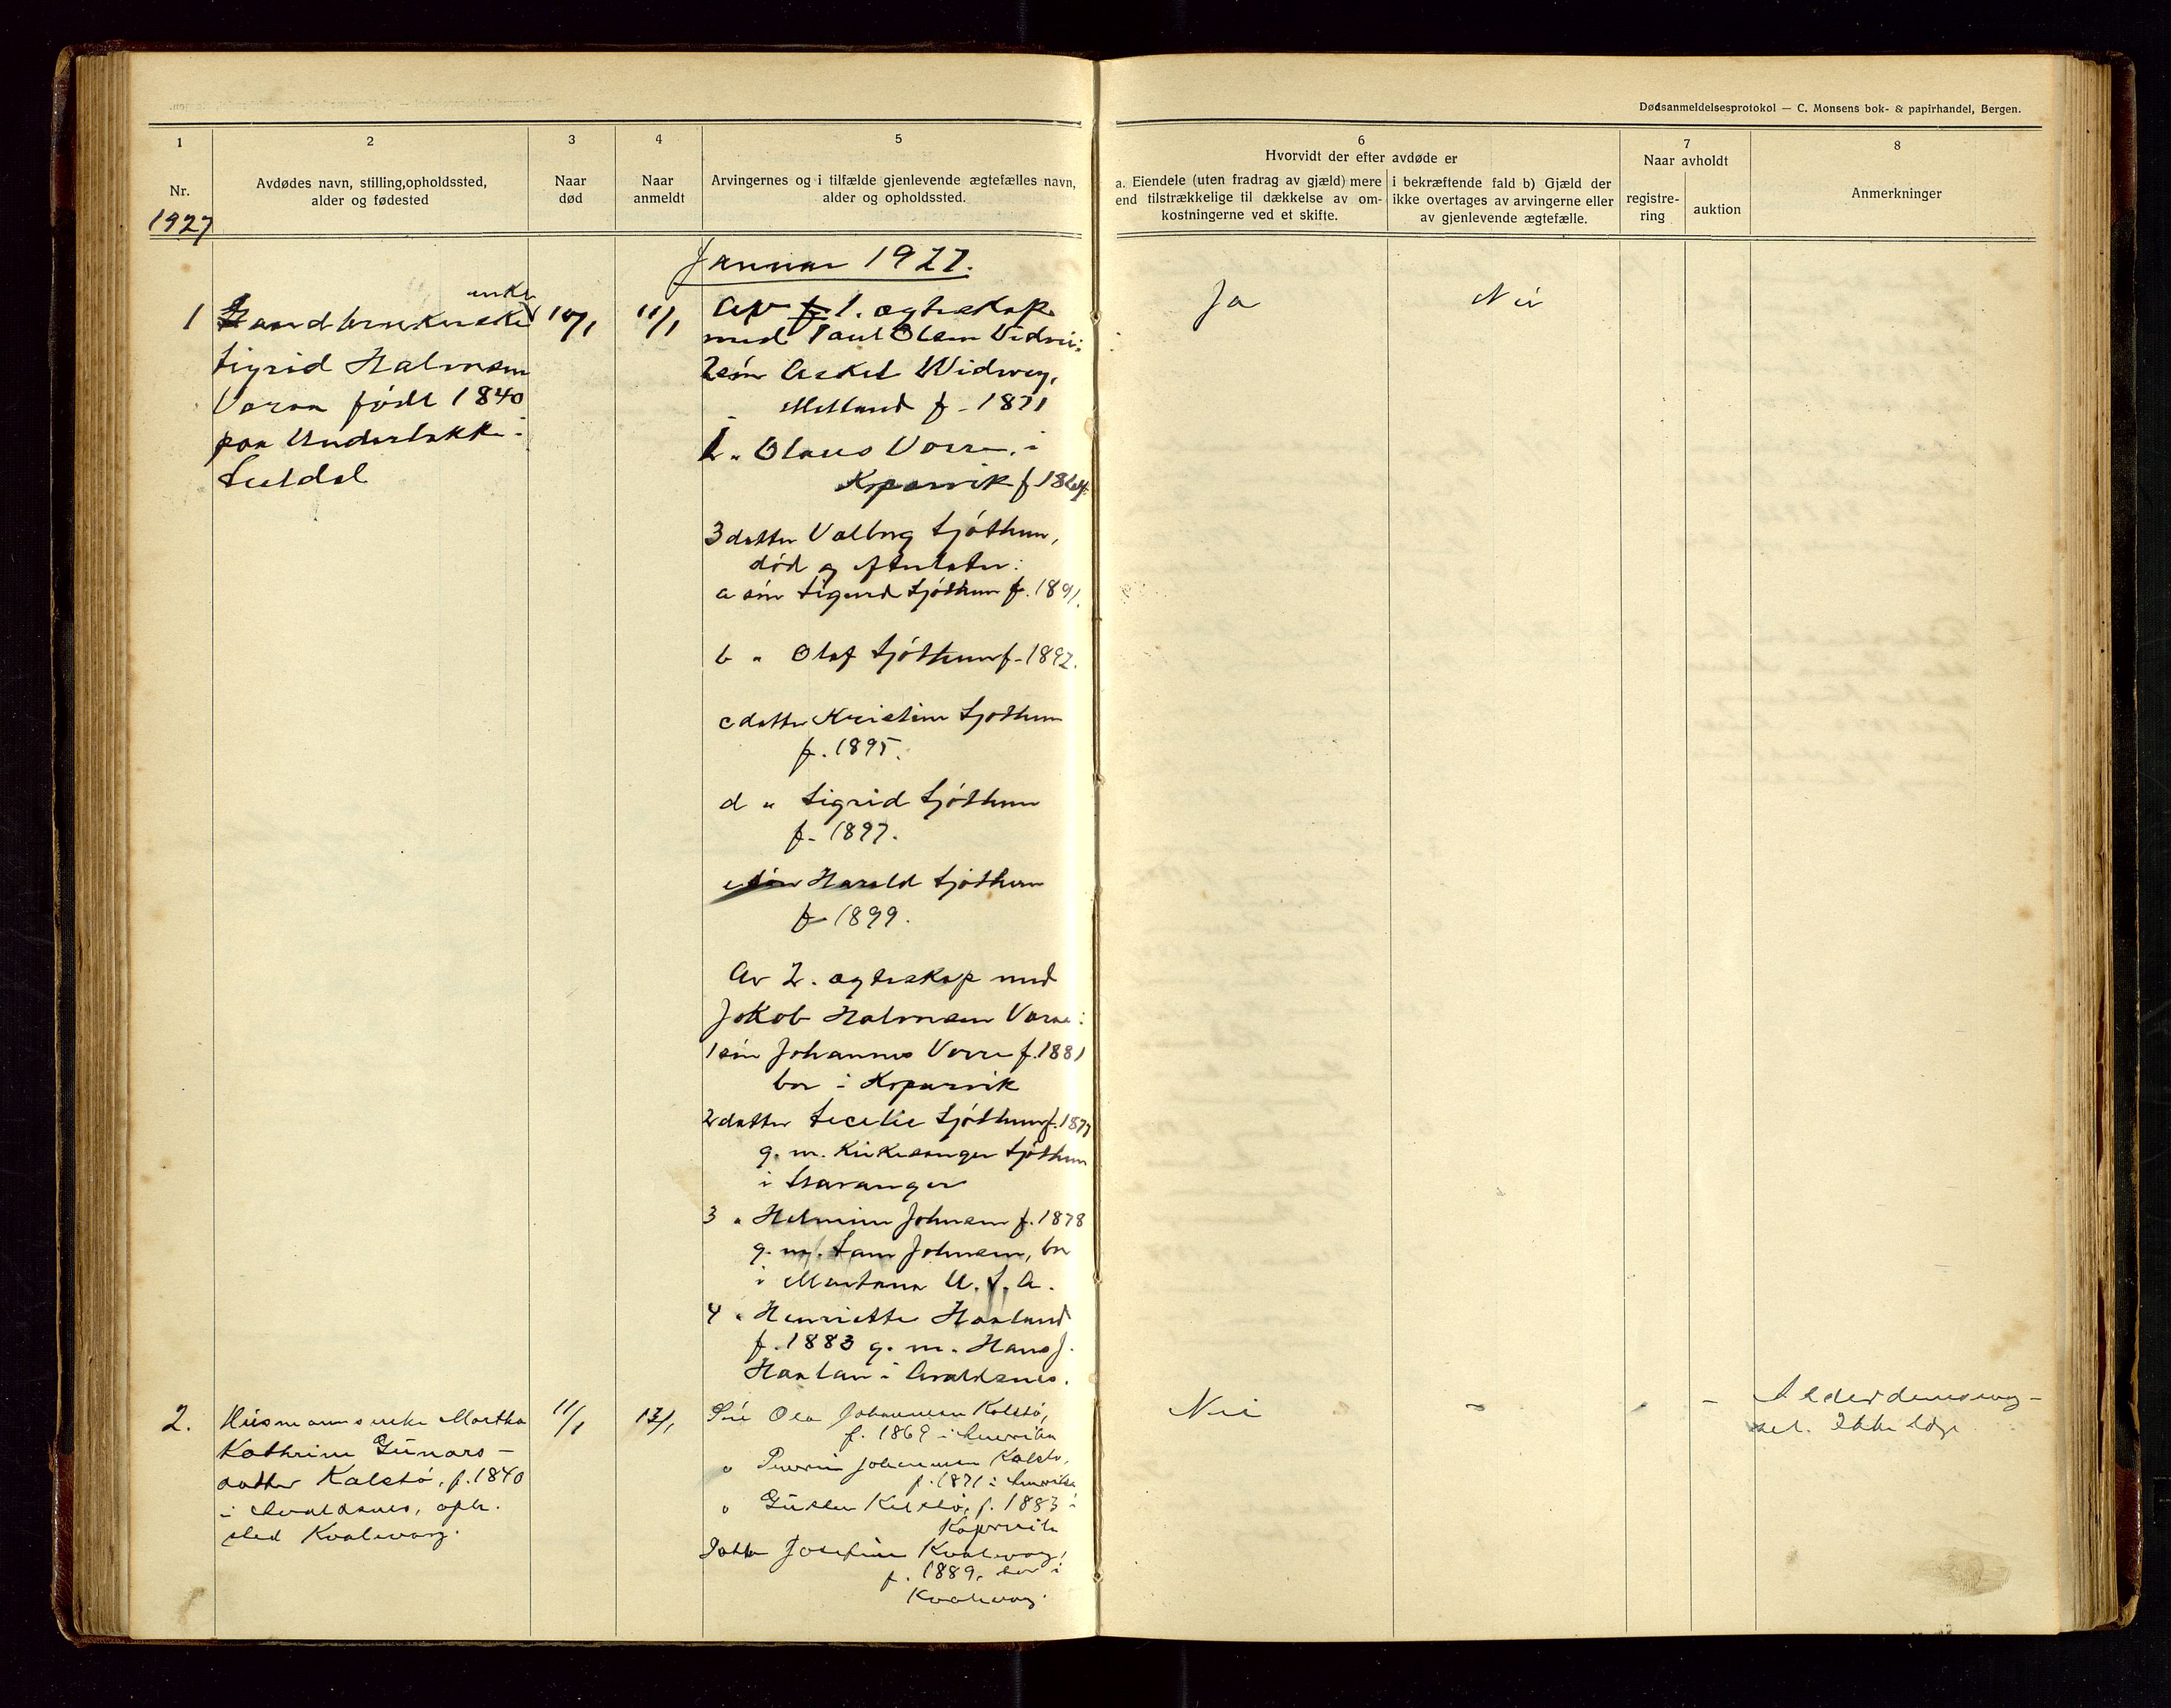 Dødsanmeldelsesprotokol — C. Monsens bok- & papirhandel, Bergen.
1
2
3
4
5
6
7
8
Nr.
Avdødes navn, stilling, opholdssted,
alder og fødested
Naar
død
Naar
anmeldt
Arvingernes og i tilfælde gjenlevende ægtefælles navn,
alder og opholdssted.
Hvorvidt der efter avdøde er
a. Eiendele (uten fradrag av gjæld) mere
end tilstrækkelige til dækkelse av om-
kostningerne ved et skifte.
i bekræftende fald b) Gjæld der
ikke overtages av arvingerne eller
av gjenlevende ægtefælle.
Naar avholdt
registre-
ring
auktion
Anmerkninger
1927
Januar 1927.
1
enke
Sigrid Halvorsen
Voraa født 1840
paa Underbakke i
Suldal
10/1
11/1
Av 1. ægteskap
med Paul Olsen
søn Askel Widvey,
f. 1871
2 " Olaus Vorraa i
Kopervik f. 1864
3 datter Valborg Sjøthun,
død og efterlater:
a søn Sigurd Sjøthun f. 1891.
b " Olaf Sjøthun f. 1892.
c datter Kristine Sjøthun
f. 1895.
d " Sigrid Sjøthun
f. 1897.
e søn Harald Sjøthun
f 1899.
Av 2. ægteskap med
Jakob Halvorsen Voraa:
1 søn Johannes Vorraa f. 1881
bor i Kopervik
2 datter Cecilie Sjøthun f. 1877
g. m. Kirkesanger Sjøthun
i Stavanger
3 " Helmine Johnsen f. 1878
g. m. Sam Johnsen, bor
i Montana U. S. A.
4 " Henriette Haaland
f. 1883 g. m. Hans J.
Haalan i Avaldsnes.
Ja
Nei
2.
Husmannsenke Martha
Kathrine Gunnars-
datter Kalstø, f. 1840
i Avaldsnes, oph.
sted Kvalevaag.
11/1
13/1
Søn Ola Johannesen Kalstø,
f. 1869 i Amerika
" Johannesen Kalstø,
f. 1871 i Amerika
" Kalstø, f. 1883 i
Kopervik
Datter Josefine Kvalevaag,
f. 1889, bor i
Kvalevaag.
Nei
-
-
-
Alderdomsvag-
set. Ikke læge